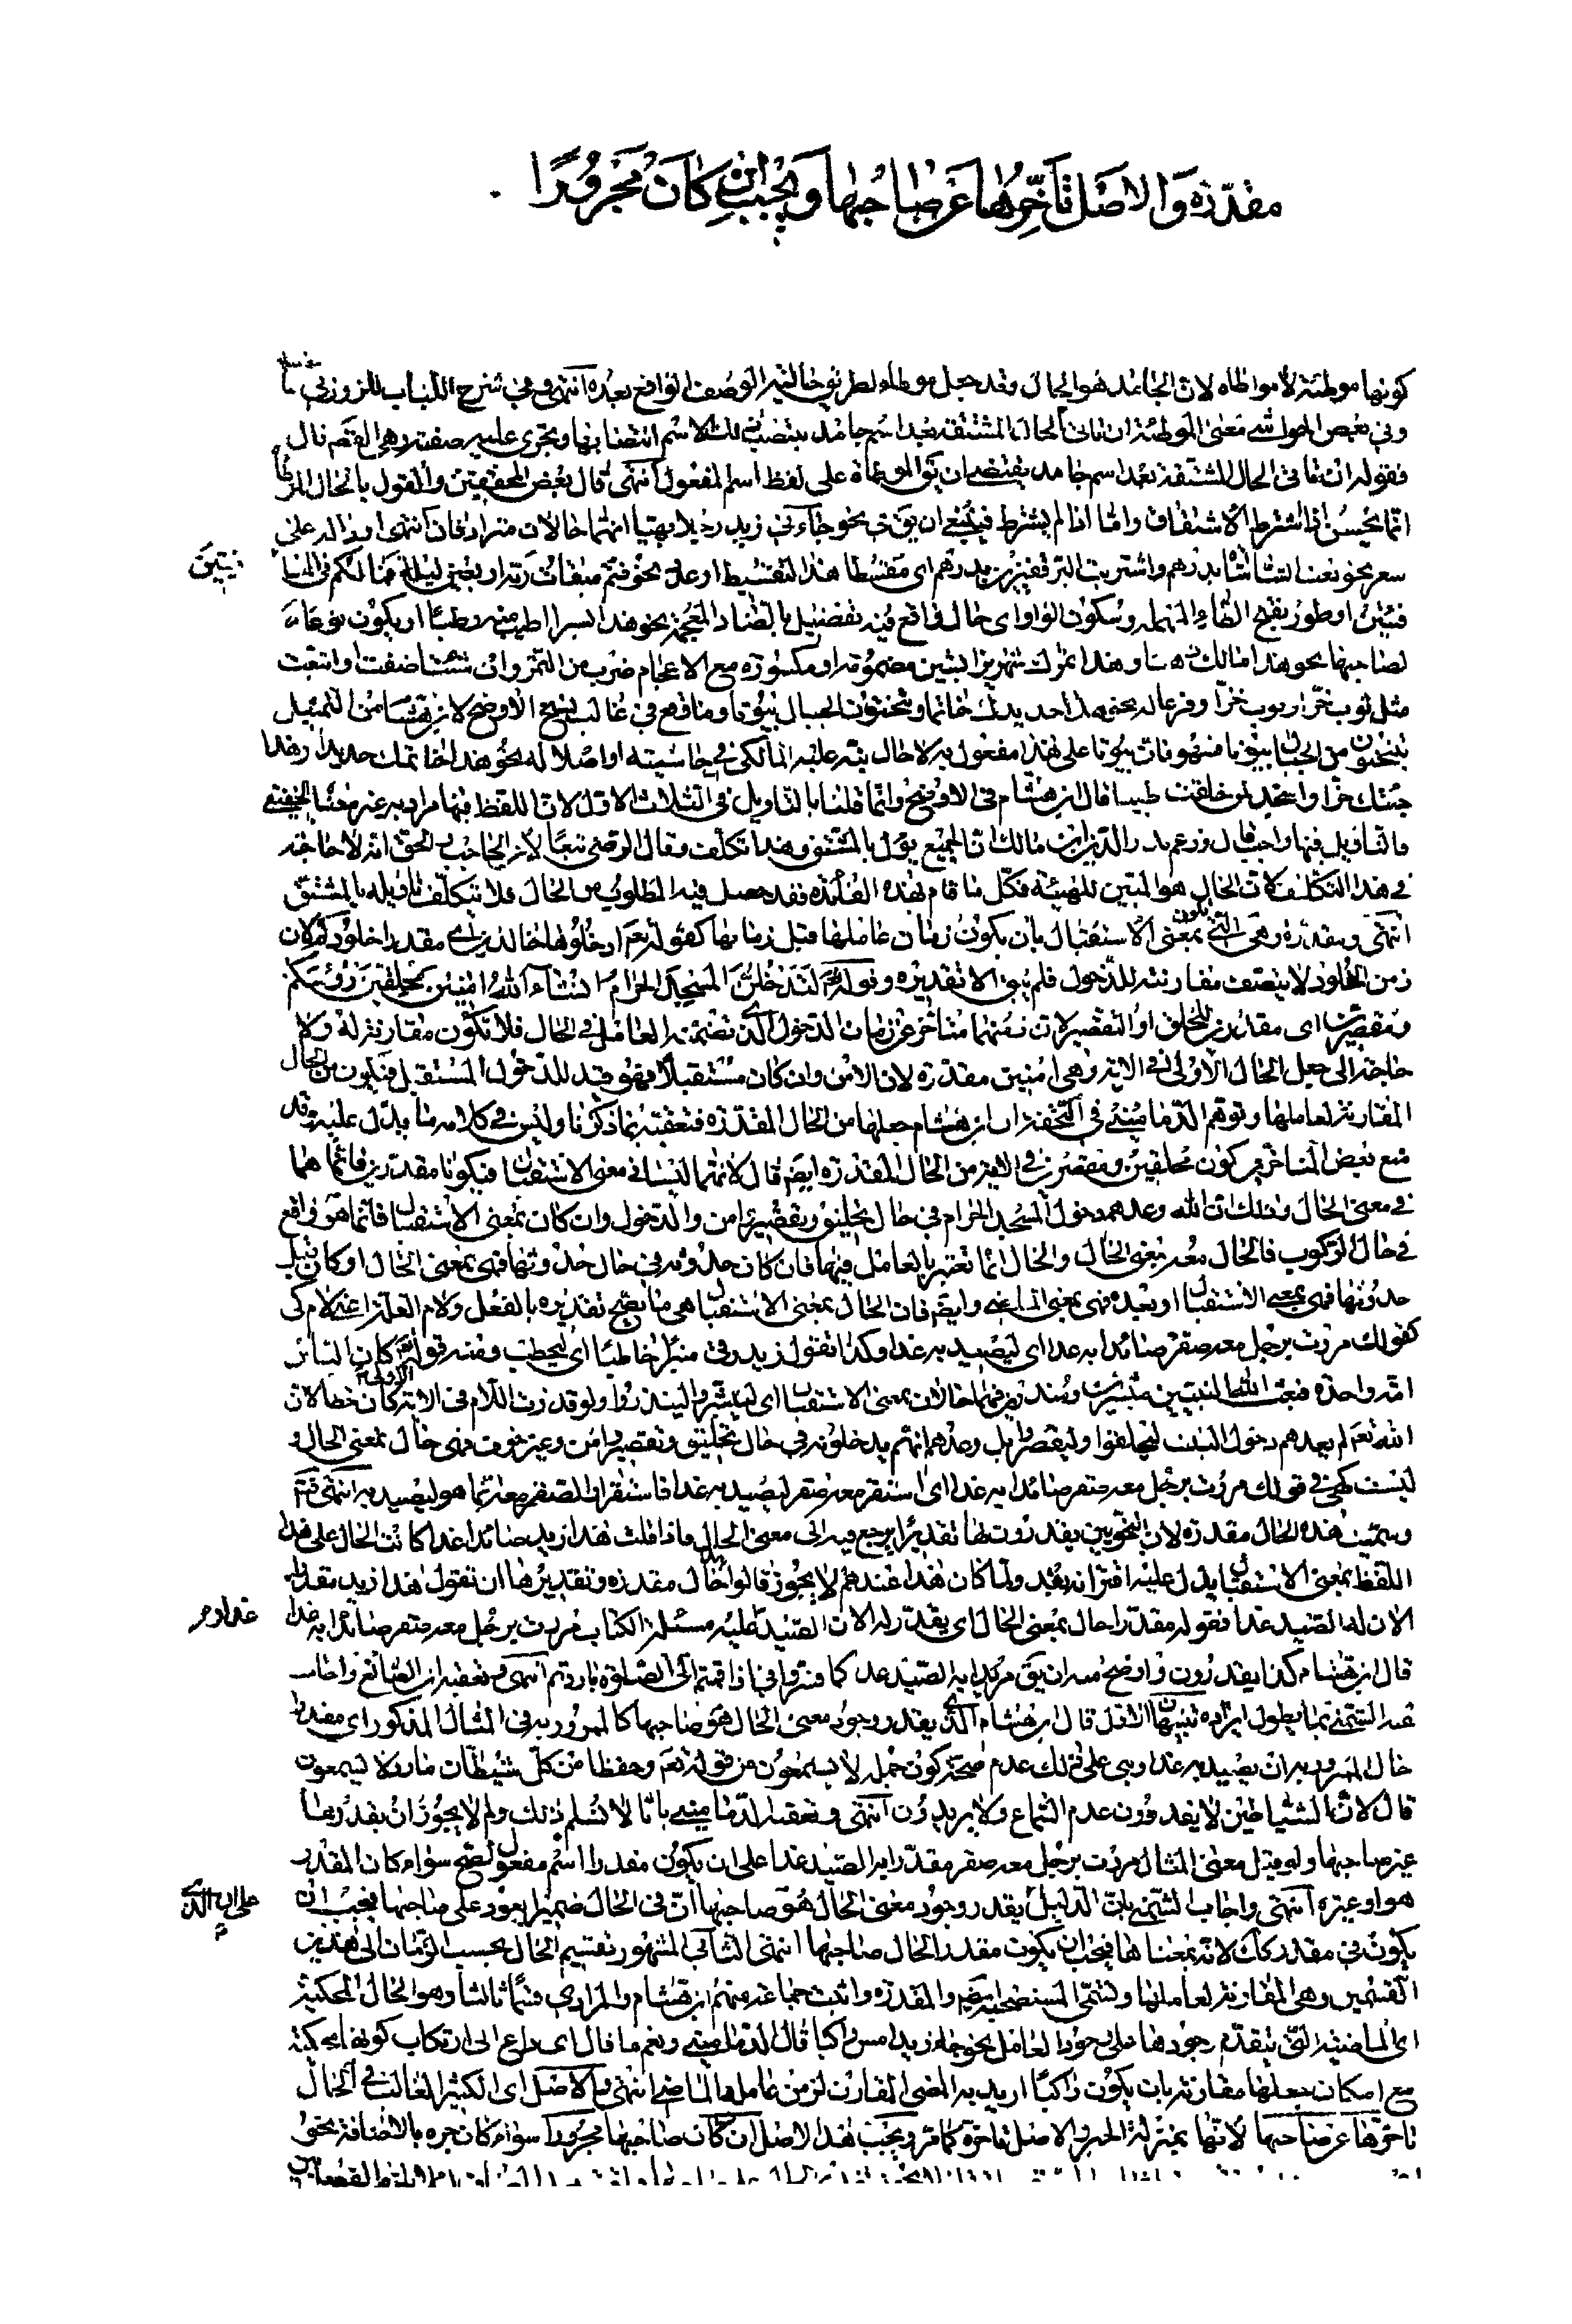 مقدّرة والاصل تأخّرها عن صاحبها ويجب ان كان مجرورًا
كونها موطئة لا موطاه لان الجامد هو الحال وقد جعل موطاء لطريق حالية الوصف الواقع بعده انتهى وفي شرح اللباب للزوزني
وفي بعض الحواشي معنى الموطئة ان تاتى الحال المشتقة بعد اسم جامد ينتصب ذلك الاسم انتصابها ويجرى عليه صفته وهى القصة قال
فقوله ان تاتى الحال المشتقة بعد اسم جامد يقتضى ان يق الموطاة على لفظ اسم المفعول انتهى قال بعض المحققين والقول بالحال الموطأ
انما يحسن اذا اشترط الاشتقاق واما اذا لم يشترط فينبغى ان يق في نحو جاءنى زيد رجلا بهيا انهما حالان مترادفان انتهى او دالة على
سعر نحو بعنا الشاء شاة بدرهم واشتريت البر قفيزين بدرهم اى مقسطا هذا التقسيط او عدد نحو فتم ميقات ربه اربعين ليلة فما لكم في المنا
فئتين او طور بفتح الطاء المهملة وسكون الواو اى حال واقع فيه تفضيل بالضاد المعجمة نحو هذا بسرا اطيب منه رطبا او يكون نوعا
لصاحبها نحو هذا مالك ذهبا وهذا تمرك شهريز الشين مضمومة او مكسورة مع الاعجام ضرب من التمر وان شئت اضفت او اتبعت
مثل ثوب خزّ او ثوب خزّا وفرعا له نحو هذا حديدك خاتما وتنحتون الجبال بيوتا وما وقع في غالب نسخ الاوضح لابن هشام من التمثيل
بتنحتون من الجبال بيوتا منهوبات بيوتا على هذا مفعول به لا حال نبّه عليه المالكى في حاشيته او اصلا له نحو هذا خاتمك حديدا وهذا
جبتك خزّا واسجد لمن خلقت طينا قال ابن هشام في الاوضح وانما قلنا بالتاويل في الثلاث الاول لان اللفظ فيها مراد به غير معناه الحقيقى
فالتاويل فيها واجب قال وزعم بدر الدين ابن مالك ان الجميع يؤل بالمشتق وهذا تكلف وقال الرضى تبعا لابن الحاجب والحق انه لا حاجة
في هذا التكلف لان الحال هو المبين للهيئة فكل ما قام بهذه الفائدة فقد حصل فيه المطلوب من الحال فلا يتكلف تاويله بالمشتق
انتهى ومقدرة وهى التى تكون بمعنى الاستقبال بأن يكون زمان عاملها قبل زمانها كقوله تعم ادخلوها خالدين اى مقدرا خلودكم لان
زمن الخلود لا يتصف مقارنته للدخول فلم يبق الا تقديره وقوله تعم لتدخلن المسجد الحرام ان شاء الله امنين محلقين رؤسكم
ومقصرين اى مقدرين للحلق او التقصير لان زمنهما متأخر عن زمان الدخول الذى تضمنه العامل في الحال فلا تكون مقارنة له ولا
حاجة الى جعل الحال الاولى في الاية وهى امنين مقدرة لان الامن وان كان مستقبلا فهو قيد للدخول المستقبل فيكون من الحال
المقارنة لعاملها وتوهم الدمامينى في التحفة ان ابن هشام جعلها من الحال المقدرة فتعقبه بما ذكرنا وليس في كلامه ما يدل عليه وقد
منع بعض المتأخرين كون محلقين ومقصرين في الاية من الحال المقدرة ايضم قال لانهما ليسا في معنى الاستقبال فيكونا مقدرين فانما هما
في معنى الحال وذلك ان الله وعدهم دخول المسجد الحرام في حال تحليق وتقصير وامن والدخول وان كان بمعنى الاستقبال فانما هو واقع
في حال الركوب فالحال معه بمعنى الحال والحال انما تعتبر بالعامل فيها فان كان حدوثه في حال حدوثها فهى بمعنى الحال او كان قبل
حدوثها فهى بمعنى الاستقبال او بعده فهى بمعنى الماضى وايضم فان الحال بمعنى الاستقبال هى ما يصح تقديره بالفعل ولام العلة اعنى لام كى
كقولك مررت برجل معه صقر صائدا به غدا اى ليصيد به غدا وكذا تقول زيد رقى منبرا خاطبا اى ليخطب ومنه قوله تعم كان الناس
امة واحدة فبعث الله النبيين مبشرين ومنذرين فهما حالان بمعنى الاستقبال اى ليبشروا لينذروا ولو قدرت اللام في الاية الاولى كان خطا لان
الله تعم لم يعدهم دخول البيت ليحلقوا وليقصروا بل وعدهم انهم يدخلونه في حال تحليق وتقصير وامن وغير خوف فهى حال بمعنى الحال و
ليست كهى في قولك مررت برجل معه صقر صائدا به غدا اى استقر معه صقر ليصيد به غدا فاستقرار الصقر معه انما هو ليصيد به انتهى تتمة
وسميت هذه الحال مقدرة لان النحويين يقدرون لها تقديرا يرجع فيه الى معنى الحال فاذا قلت هذا زيد صائدا غدا كانت الحال على هذا
اللفظ بمعنى الاستقبال يدل عليه اقترانه بغد ولما كان هذا عندهم لا يجوز قالوا هذا حال مقدرة وتقديرها ان تقول هذا زيد مقدرا
الان له الصيد غدا فقوله مقدرا حال بمعنى الحال اى يقدر له الان الصيد غدا وعليه مسئلة الكتاب مررت برجل معه صقر صائدا به غدا
قال ابن هشام كذا يقدرون واوضح منه ان يق مريدا به الصيد غدا كما فسروا في اذا قمتم الى الصلوة باردتم انتهى وتعقبه ابن الصائغ واجاب
عنه الشمنى بما يطول ايراده تنبيهان الاول قال ابن هشام الذى يقدر وجود معنى الحال هو صاحبها كالمرور به في المثال المذكور اى مقدرا
حال المرور به ان يصيد به غدا وبنى على ذلك عدم صحة كون جملة لا يسمعون من قوله تعم وحفظا من كل شيطان مارد لا يسمعون
قال لان الشياطين لا يقدرون عدم السماع ولا يريدون انتهى وتعقبه الدمامينى بانا لا نسلم ذلك ولم لا يجوز ان يقدرها
غير صاحبها ولو قيل معنى المثال مررت برجل معه صقر مقدرا به الصيد غدا على ان يكون مقدرا اسم مفعول لصح سواء كان المقدر
هو او غيره انتهى واجاب الشمنى بان الدليل على ان الذى يقدر وجود معنى الحال هو صاحبها ان في الحال ضميرا يعود على صاحبها فيجب ان
يكون في مقدر كان لانه بمعناها فيجب ان يكون مقدر الحال صاحبها انتهى الثانى المشهور تقسيم الحال بحسب الزمان الى هذين
القسمين وهى المقارنة لعاملها وتسمى المستصحبة ايضم والمقدرة واثبت جماعة منهم ابن هشام والمرادى قسما ثالثا وهو الحال المحكية
اى الماضية التى يتقدم وجودها على وجود العامل نحو جاء زيد امس راكبا قال الدمامينى ونعم ما قال اى داع الى ارتكاب كونها محكية
مع امكان جعلها مقارنة بان يكون راكبًا اريد به المضى المقارن لزمن عاملها الماضى انتهى والاصل اى الكثير الغالب في الحال
تاخرها عن صاحبها لانها بمنزلة الخبر والاصل تاخره كما مر ويجب هذا الاصل ان كان صاحبها مجرورا سواء كان جره بالاضافة نحو